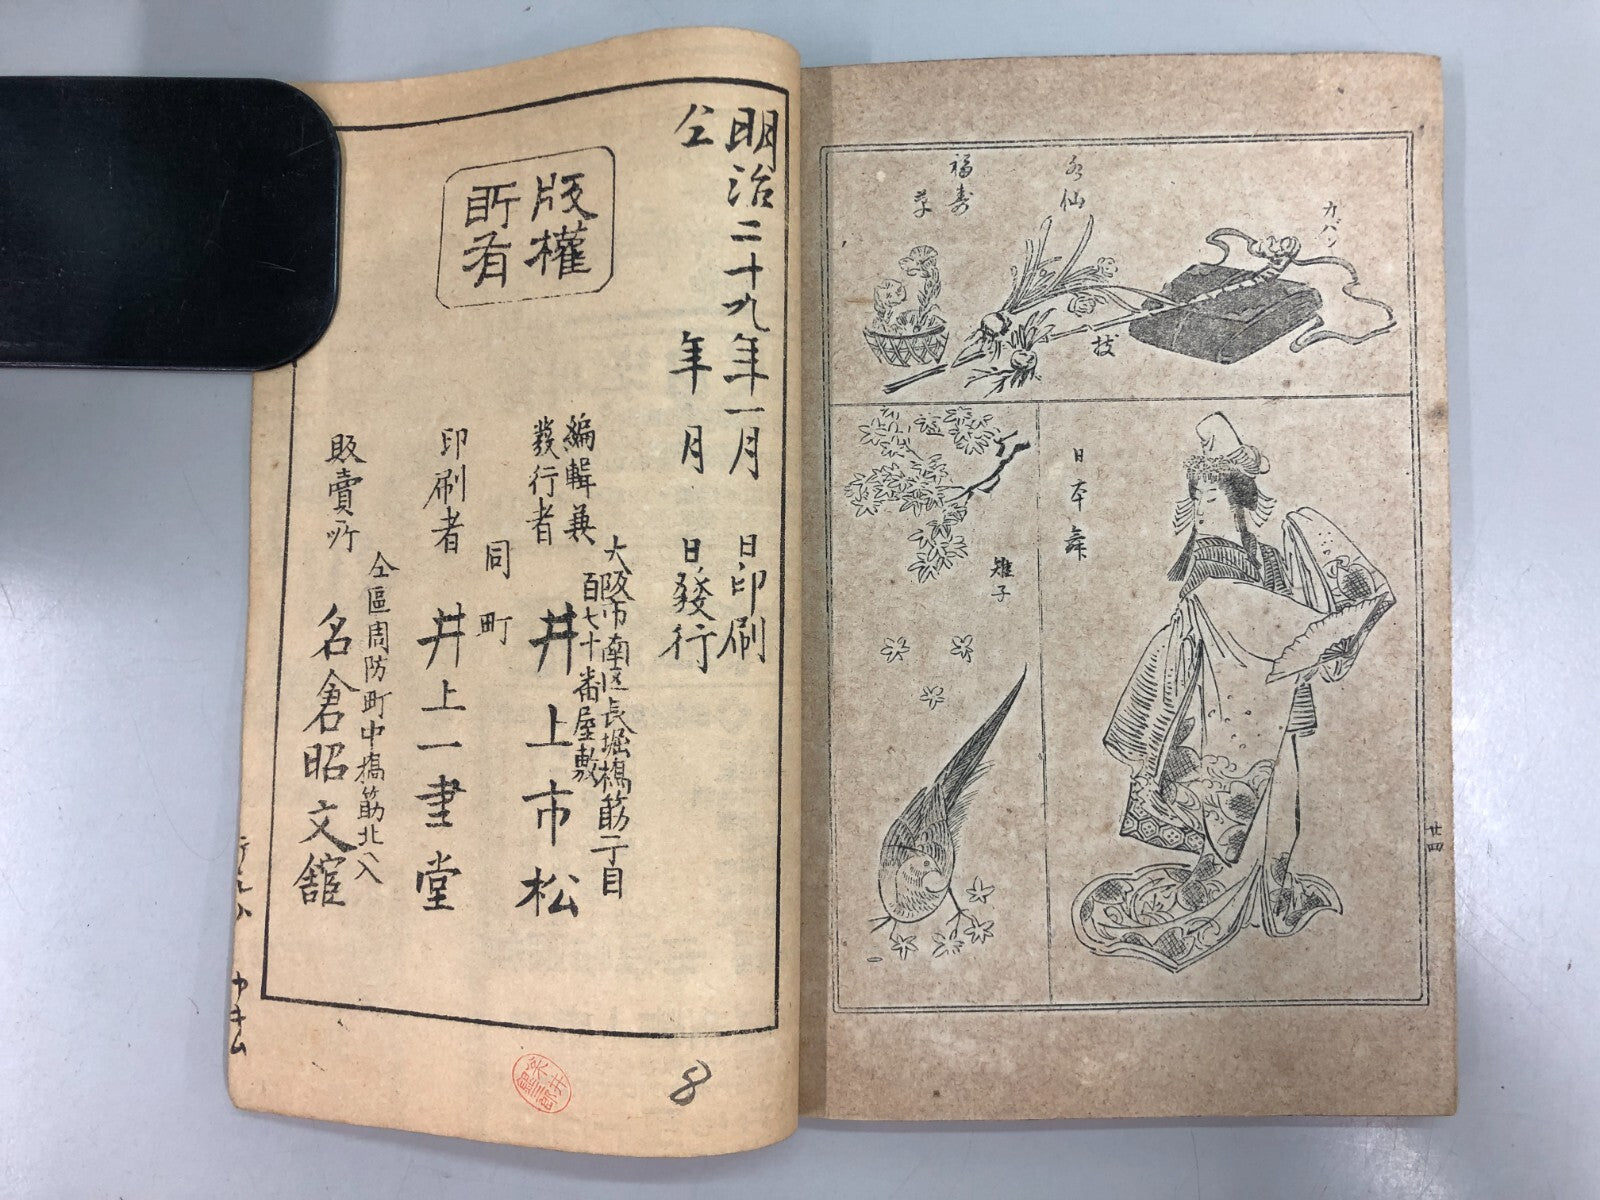 カバン
水仙
福寿
草
杖
日本舞
雉子
廿四
明治二十九年一月 日印刷
仝 年 月 日發行
版權
所有
大阪市南区長堀橋筋二丁目
百七十番屋敷
編輯兼
發行者 井上市松
同町
印刷者 井上一書堂
仝區周防町中橋筋北へ入
販賣所 名倉昭文舘
8